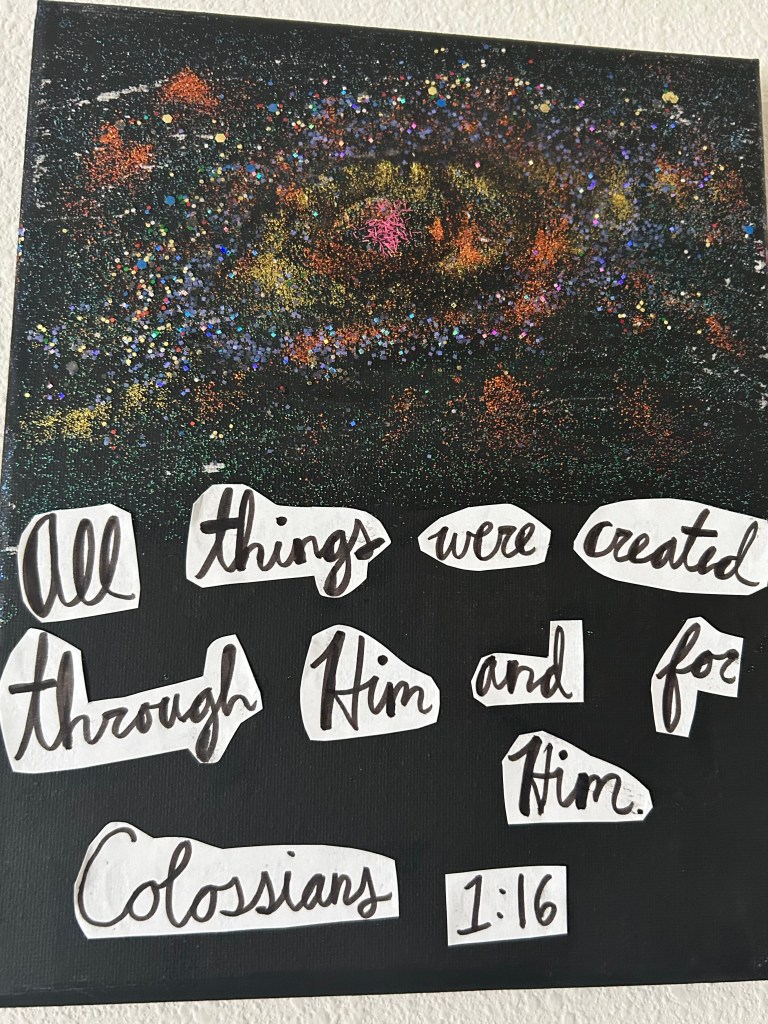 All things were created
through Him and for
Him.
Colossians 1:16